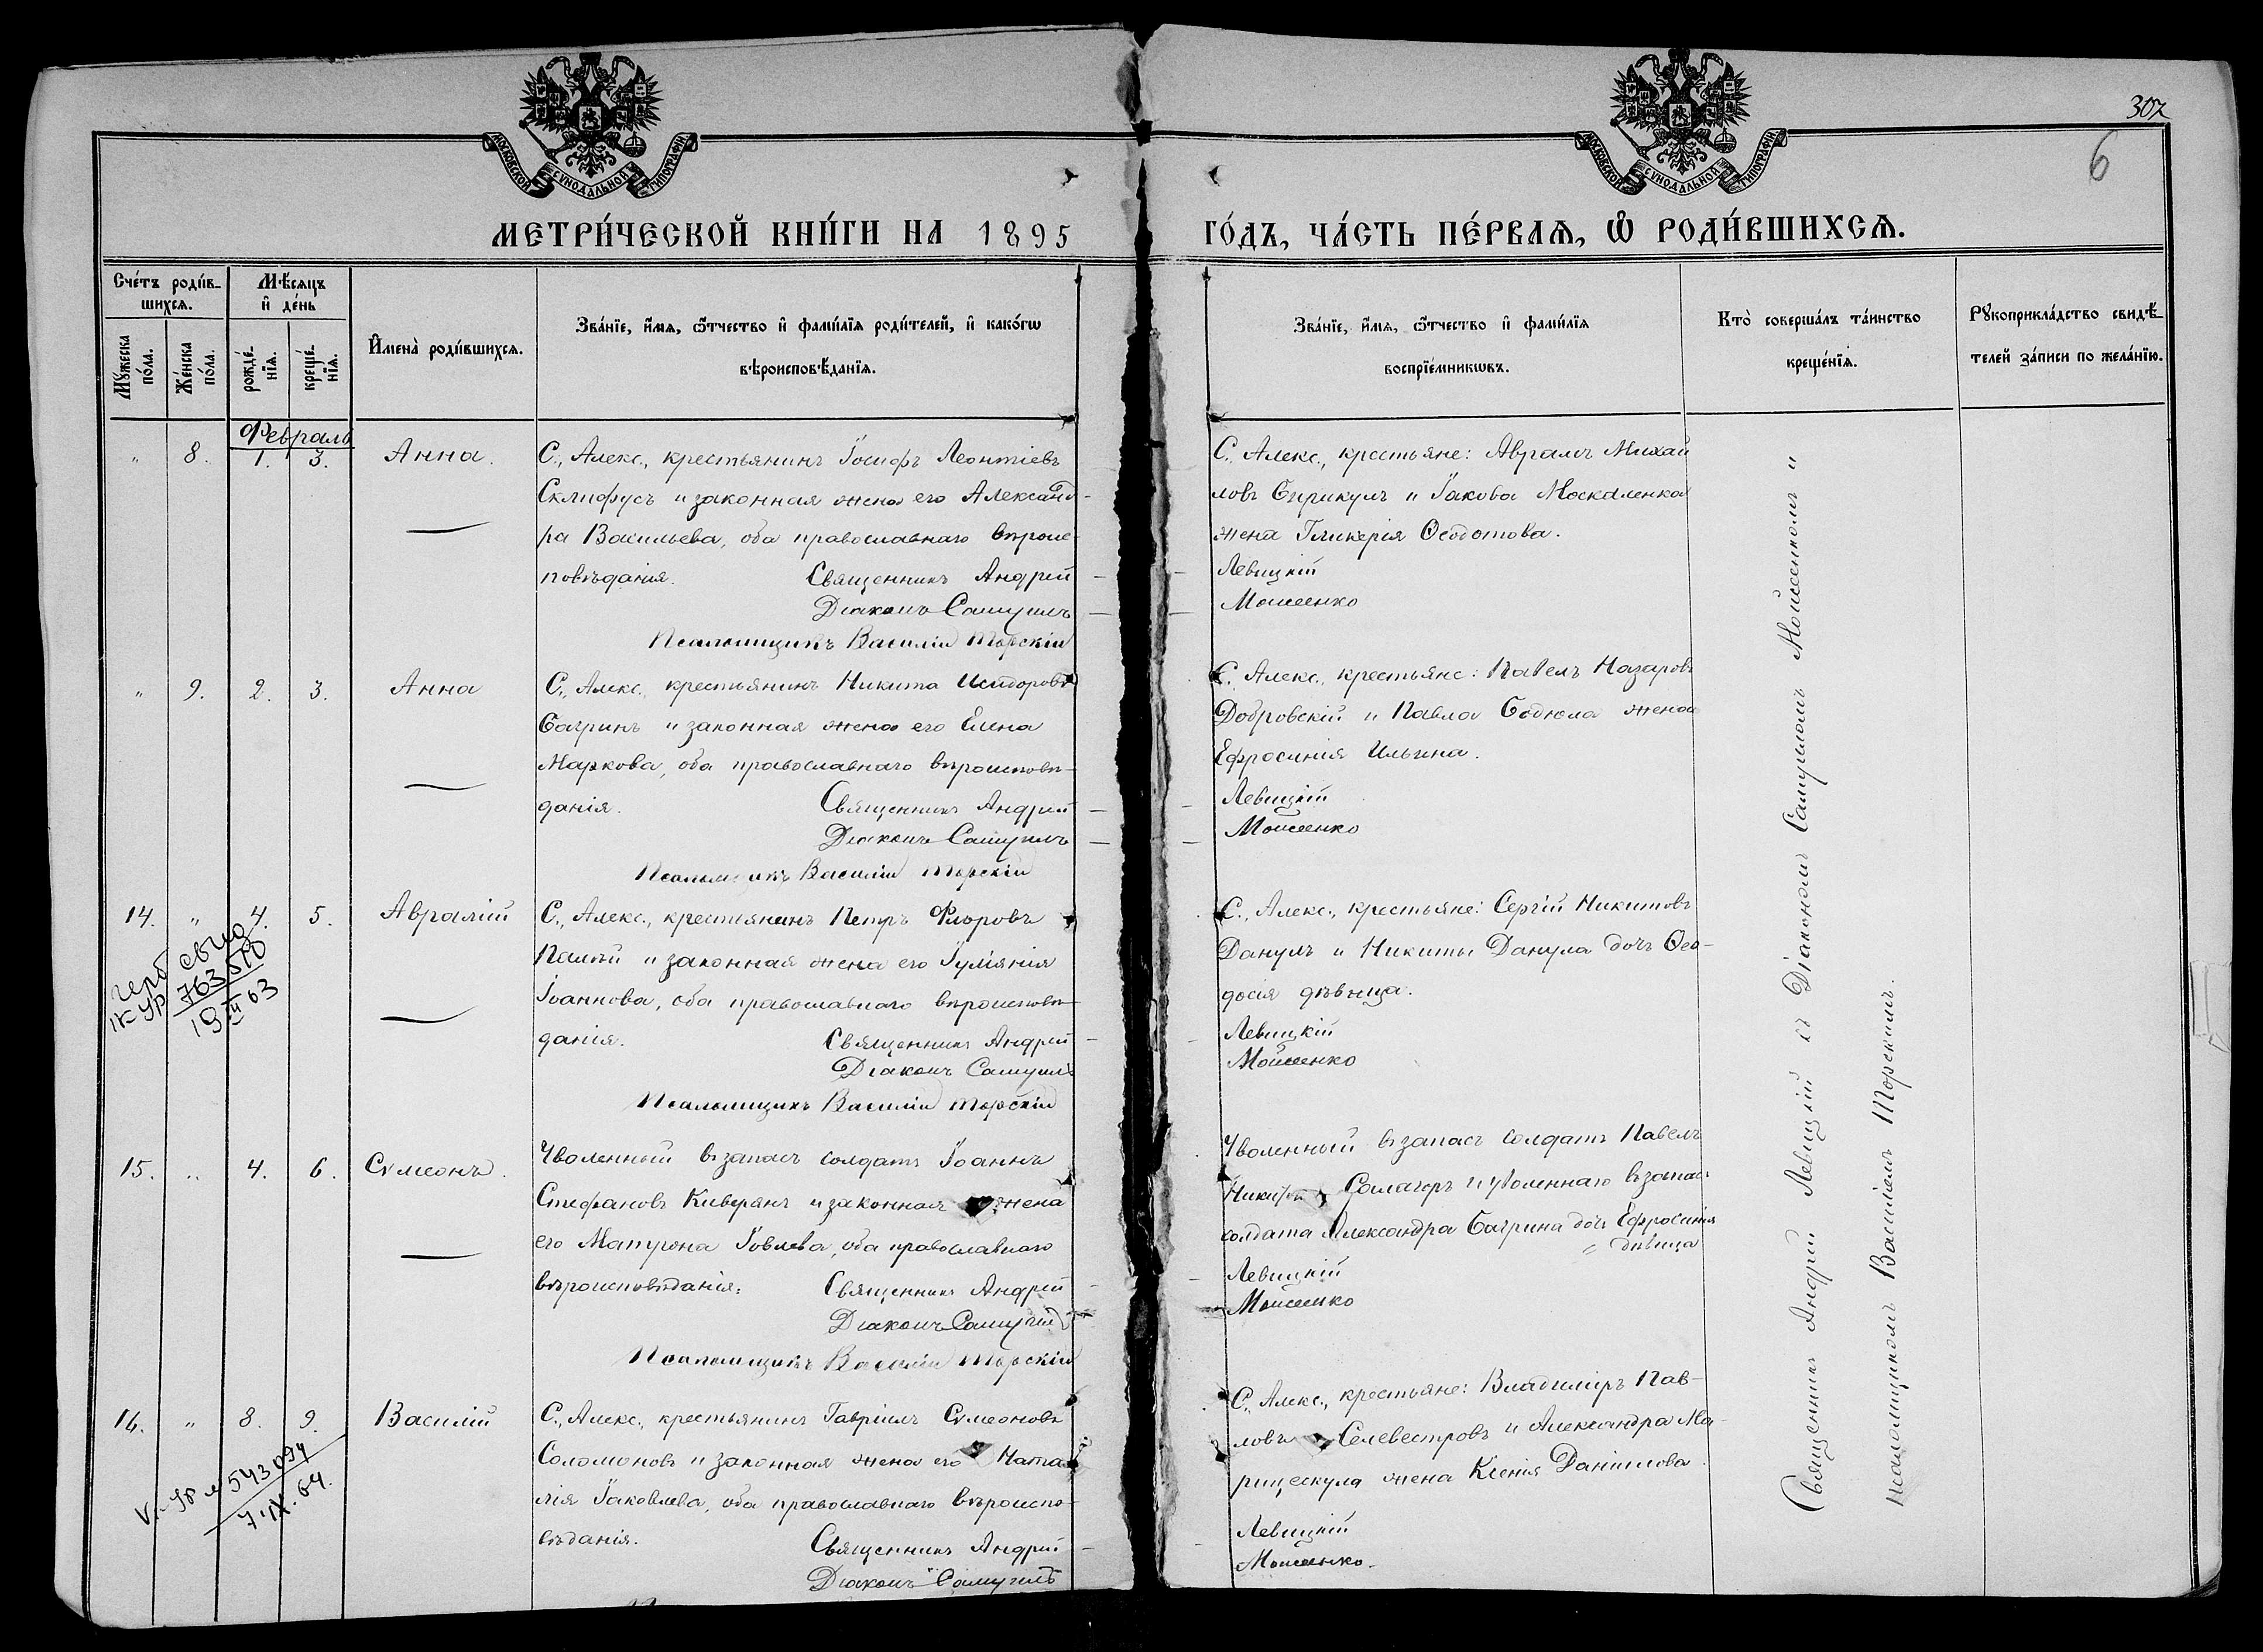 307
6
МОСКОВСКОЙ СѴНОДАЛЬНОЙ ТИПОГРАФІИ
МОСКОВСКОЙ СѴНОДАЛЬНОЙ ТИПОГРАФІИ
МЕТРИ́ЧЕСКОЙ КНИ́ГИ НА 1895
ГО́ДЪ, ЧА́СТЬ ПЕ́РВАѦ, Ѡ РОДИ́ВШИХСѦ.
Сче́тъ роди́в-
шихсѧ.
Мѣ́сѧцъ
и҆ де́нь
Мꙋ́жеска
по́ла.
Же́нска
по́ла.
рожде́-
нїѧ.
креще́-
нїѧ.
И҆мена̀ роди́вшихсѧ.
Зва́нїе, и҆́мѧ, ѻ҆́тчество и҆ фами́лїѧ роди́телей, и҆ како́гѡ
вѣроисповѣ́данїѧ.
Зва́нїе, и҆́мѧ, ѻ҆́тчество и҆ фами́лїѧ
воспрїе́мникѡвъ.
Кто̀ соверша́лъ та́инство
креще́нїѧ.
Рꙋкоприкла́дство свидѣ́-
телей за́писи по жела́нїю.
Февраль
„ 8. 1. 3. Анна.
С., Алекс., крестьянинъ Іосифъ Леонтіевъ
Склифусъ и законная жена его Александ-
ра Васильева, оба православнаго вѣроис-
повѣданія. Священникъ Андрей
Діаконъ Самуилъ
Псаломщикъ Василій Торскій
С., Алекс., крестьяне: Аврамъ Михай
ловъ Спрікулъ и Іакова Москаленка
жена Гликерія Ѳеодотова.
Левицкій
Моисеенко
„ 9. 2. 3. Анна
С., Алекс., крестьянинъ Никита Исидоровъ
Багринъ и законная жена его Елена
Маркова, оба православнаго вѣроисповѣ-
данія. Священникъ Андрей
Діаконъ Самуилъ
Псаломщикъ Василій Торскій
С., Алекс., крестьяне: Павелъ Назаровъ
Добровскій и Павла Бодюла жена
Ефросинія Ильина.
Левицкій
Моисеенко
14. „ 4. 5. Аврамій
С., Алекс., крестьянинъ Петръ Флоровъ
Палій и законная жена его Іуліянія
Іоаннова, оба православнаго вѣроисповѣ-
данія. Священникъ Андрей
Діаконъ Самуилъ
Псаломщикъ Василій Торскій
С., Алекс., крестьяне: Сергій Никитовъ
Данулъ и Никиты Данула дочь Ѳео-
досія дѣвица.
Левицкій
Моисеенко
герб свид
763510
19 III 63
15. „ 4. 6. Сѵмеонъ.
Уволенный въ запасъ солдатъ Іоаннъ
Стефановъ Киверянъ и законная жена
его Матрона Іовлева, оба православнаго
вѣроисповѣданія. Священникъ Андрей
Діаконъ Самуилъ
Псаломщикъ Василій Торскій
Уволенный въ запасъ солдатъ Павелъ
Саламоръ и уволеннаго въ запасъ
солдата Александра Багрина дочь Ефросинія
дѣвица
Левицкій
Моисеенко
16. „ 8. 9. Василій
С., Алекс., крестьянинъ Гавріилъ Сѵмеоновъ
Соломоновъ и законная жена его Ната-
лія Іаковлева, оба православнаго вѣроиспо-
вѣданія. Священникъ Андрей
Діаконъ Самуилъ
С., Алекс., крестьяне: Владиміръ Пав-
ловъ Селевестровъ и Александра Ма-
рищескула жена Ксенія Даніилова
Левицкій
Моисеенко.
543094
7.IX.64.
Священникъ Андрей Левицкій съ Діакономъ Самуиломъ Моисеенкомъ и
псаломщикомъ Василіемъ Торскимъ.